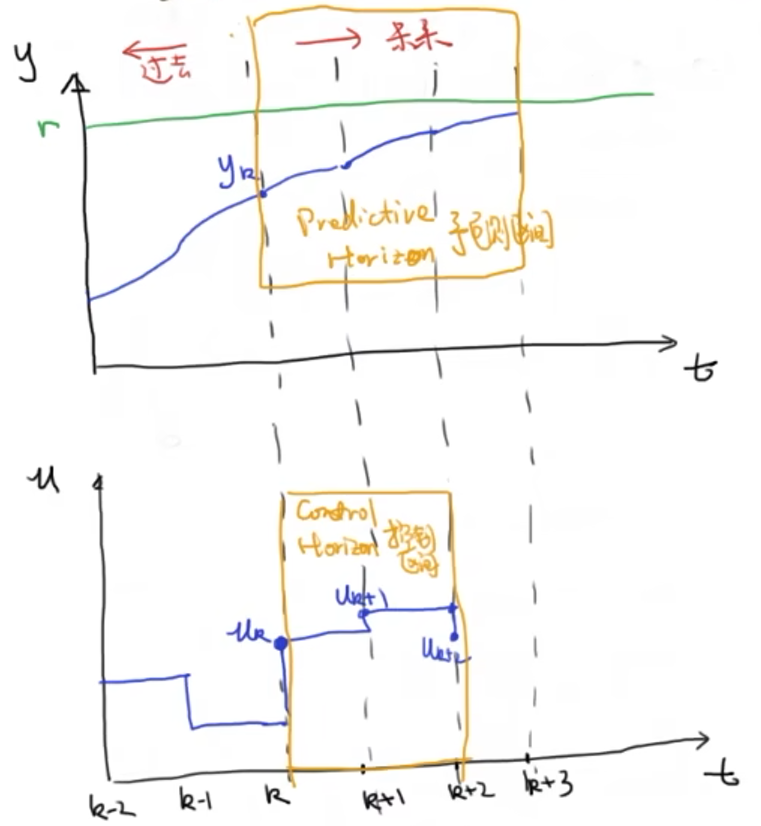 过去
未来
y
r
yk
Predictive
Horizon 预测区间
t
u
Control
Horizon 控制
区间
uk+1
uk
uk+2
t
k-2 k-1 k k+1 k+2 k+3